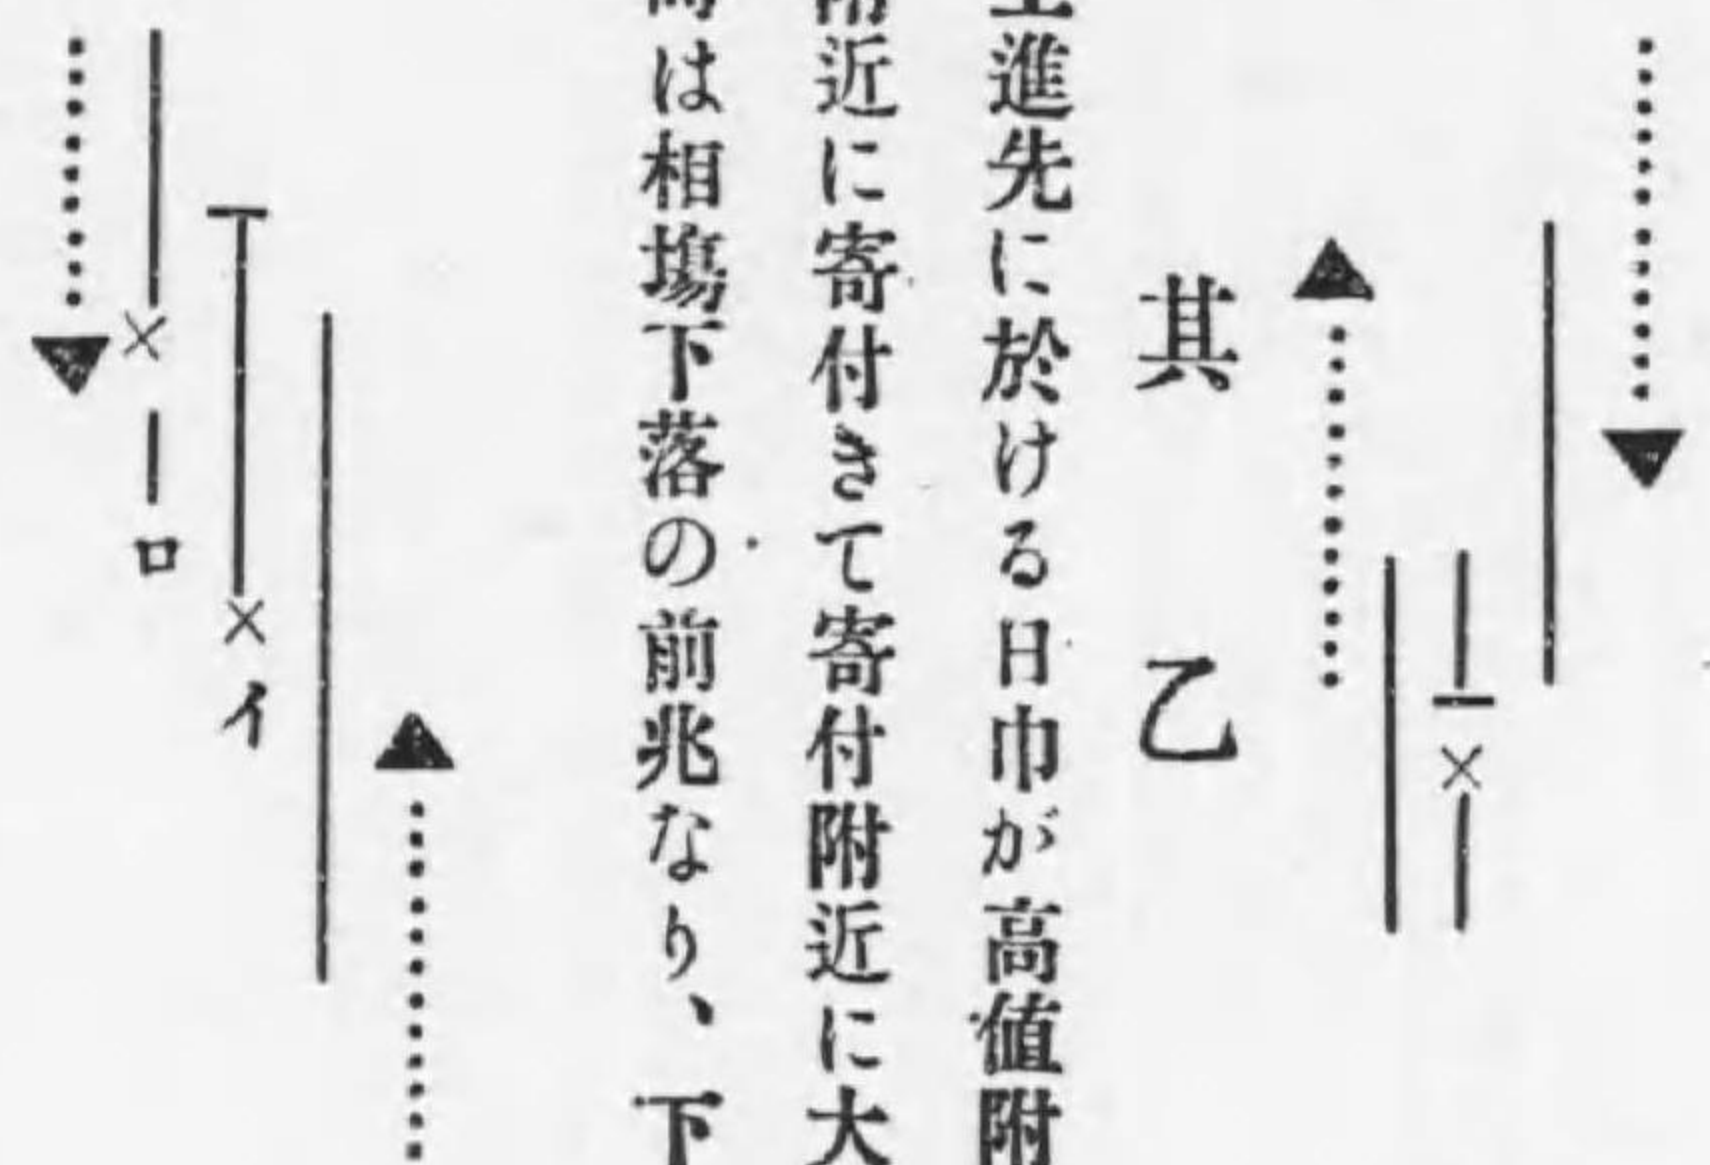 其乙
進先に於ける日巾が高値附
近に寄付きて寄付附近に大
は相塲下落の前兆なり、下
イ
ロ